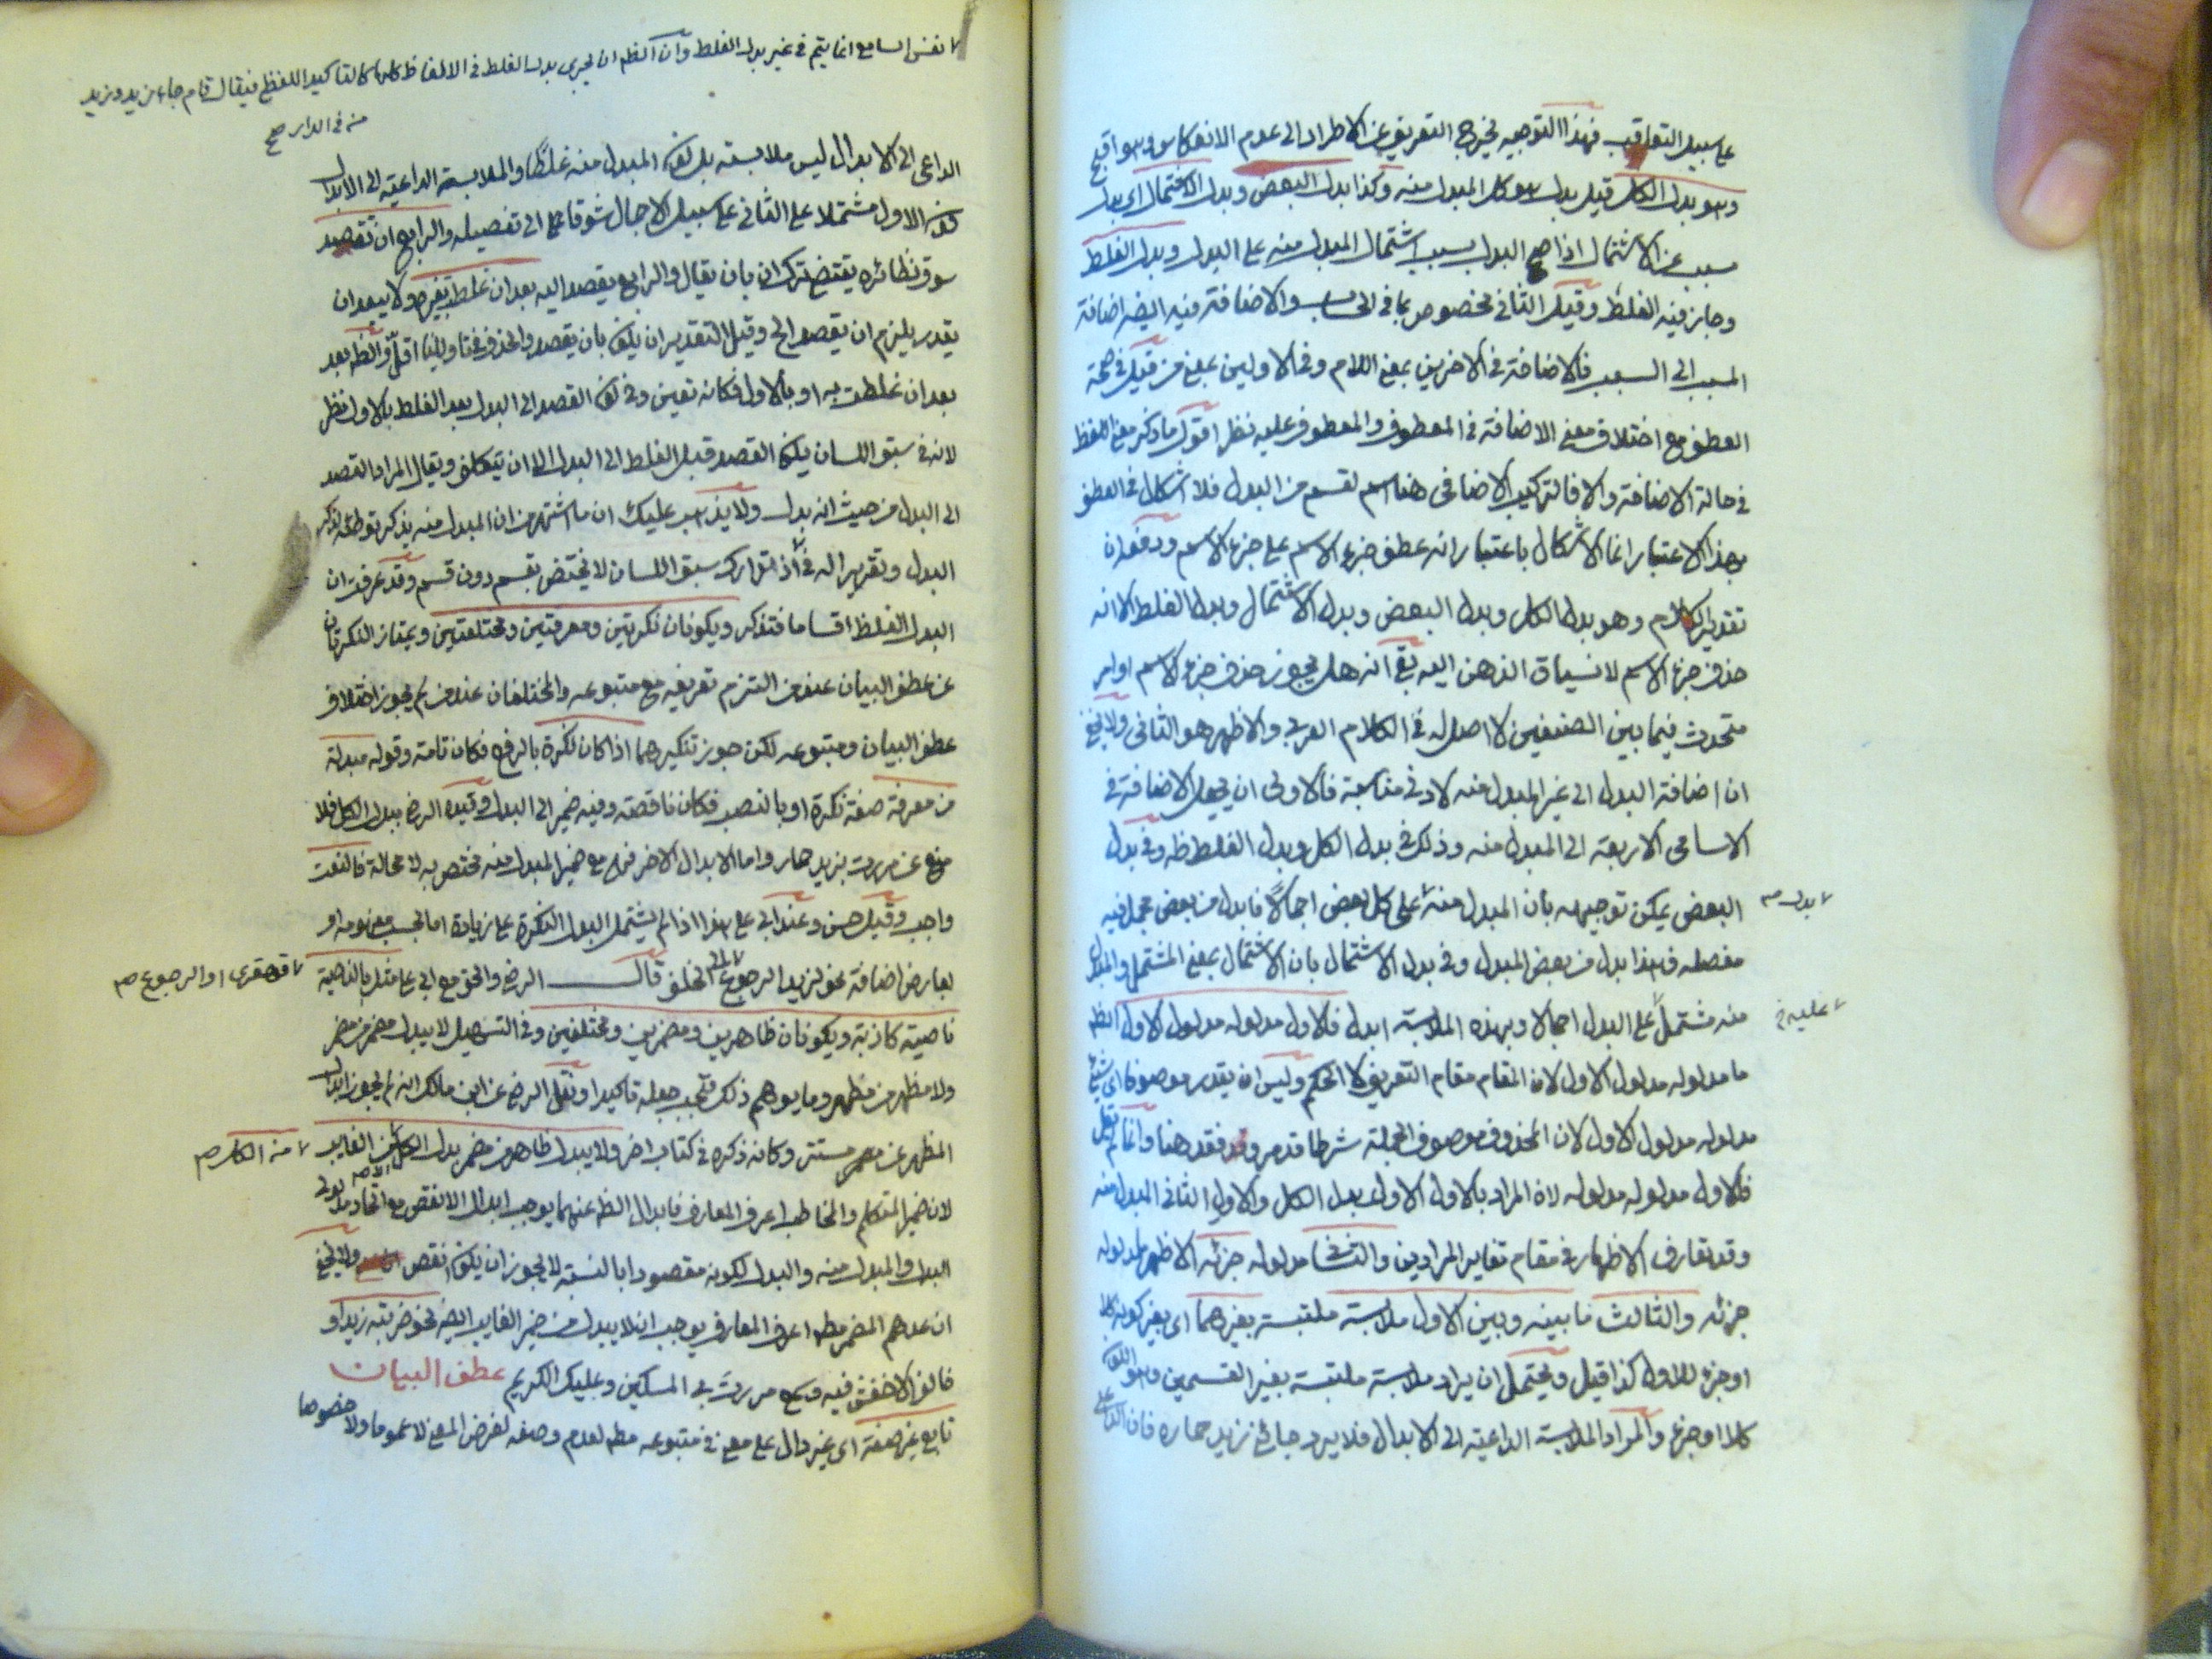 على سبيل التعاقب فهذا التوجيه يخرج التعريف عن الاطراد الى عدم الانعكاس وهو اقبح
وهو بدل الكل قيل بدل هو كل المبدل منه وكذا بدل البعض وبدل الاشتمال اى بدل
مسبب عن الاشتمال اذا صح البدل بسبب اشتمال المبدل منه على البدل وبدل الغلط
وجاز فيه الغلط وقيل الثانى مخصوص بما فى الحساب والاضافة فيه ايضا اضافة
المسبب الى السبب فالاضافة فى الاخرين بمعنى اللام وفى الاولين بمعنى من قيل فى صحة
العطف مع اختلاف معنى الاضافة فى المعطوف والمعطوف عليه نظر اقول ما ذكر معنى اللفظ
فى حالة الاضافة والا فالتركيب الاضافى هنا اسم لقسم من البدل فلا اشكال فى العطف
بهذا الاعتبار انما الاشكال باعتبار انه عطف جزء الاسم على جزء الاسم ودفعه ان
تقدير الكلام وهو بدل الكل وبدل البعض وبدل الاشتمال وبدل الغلط الا انه
حذف جزء الاسم لانسياق الذهن اليه بقى انه هل يجوز حذف جزء الاسم او امر
متحدث فيما بين المصنفين لا اصل له فى الكلام العربى والاظهر هو الثانى ولا يخفى
ان اضافة البدل الى غير المبدل منه لادنى مناسبة فالاولى ان يجعل الاضافة فى
الاسامى الاربعة الى المبدل منه وذلك فى بدل الكل وبدل الغلط ظ وفى بدل
البعض يمكن توجيهه بان المبدل منه على كل بعض اجمالا فابدل من بعض مجمل فيه
بدل صح
مفصله فهذا بدل من بعض المبدل وفى بدل الاشتمال بان الاشتمال بمعنى المشتمل والمبدل
منه مشتمل على البدل اجمالا وبهذه الملابسة ابدل فالاول مدلوله مدلول الاول الظ
عليه
ما مدلوله مدلول الاول لان المقام مقام التعريف لا الحكم وليس ان يقدر موصوفا اى شئ
مدلوله مدلول الاول لان المحذوف موصوف الجملة شرطا قد مر وقد فقد هنا وانما لم يقل
فالاول مدلوله مدلوله لان المراد بالاول الاول بدل الكل والاول الثانى المبدل منه
وقد تعارف الاظهار فى مقام تغاير المرادين والثانى مدلوله جزئه الاظهر مدلوله
جزئه والثالث ما بينه وبين الاول ملابسة ملتبسة بغيرهما اى بغير كونه كلا
او جزء للاول كذا قيل ويحتمل ان يراد ملابسة ملتبسة بغير القسمين وهو
كلا او جزء والمراد الملابسة الداعية الى الابدال فلا يرد جاءنى زيد حماره فان
نفس السامع انما يتم فى غير بدل الغلط وان الظ ان يجرى بدل الغلط فى الالفاظ كلها كالتاكيد اللفظى فيقال قام جاء زيد وزيد
منه فى الدار صح
الداعى الى الابدال ليس ملابسته بل كون المبدل منه غلطا والملابسة الداعية الى الابدال
كون الاول مشتملا على الثانى على سبيل الاجمال شوقا ما الى تفصيله والرابع ان تقصد
سوق نظائره يقتضى ترك ان بان يقال والرابع يقصد اليه بعد ان غلط بغيره ولا يبعد ان
يقدر يلزم ان يقصد الخ وقيل التقدير ان يكون بان يقصد والحذف فى تاويلنا اقل والظ بعد
بعد ان غلطت به او بالاول فكانه تعين وفى كون القصد الى البدل بعد الغلط بالاول نظر
لانه فى سبق اللسان يكون القصد قبل الغلط الى البدل الا ان يتكلف ويقال المراد القصد
الى البدل من حيث انه بدل ولا يذهب عليك ان ما اشتهر من ان المبدل منه يذكر توطئة لذكر
البدل وتقريرا له فى تدارك سبق اللسان لا يختص بقسم دون قسم وقد عرفت ان
البدل الغلط اقساما فتذكر ويكونان نكرتين ومعرفتين ومختلفتين ويمتاز النكرتان
عن عطف البيان عند من التزم تعريفه مع متبوعه والمختلفان عند من لم يجوز اختلاف
عطف البيان ومتبوعه لكن جوز تنكيرهما اذا كان نكرة بالرفع فكان تامة وقوله مبدلة
من معرفة صفة نكرة او بالنصب فكان ناقصة وفيه ضمير الى البدل وقيده الرضى ببدل الكل فلا
منع عن مررت بزيد حمار واما الابدال الاخر فهى مع ضمير المبدل منه مختص به لا محالة فالنعت
واجب وقيل حسن وعند ابى على هذا اذا لم يشتمل البدل النكرة على زيادة اما بحسب مفهومه او
بعارض اضافة نحو لزيد الرجوع الى خلف قال الرضى والحق مع ابى على مثل بالناصية
قهقرى او الرجوع صح
ناصية كاذبة ويكونان ظاهرين ومضمرين ومختلفين وفى التسهيل لا يبدل مضمر من مضمر
ولا مظهر من مظهر وما يوهم ذلك فيجب جعله تاكيدا ونقل الرضى عن ابن مالك انه لم يجوز ابدال
المظهر عن مضمر مستتر وكانه ذكره فى كتاب اخر ولا يبدل ظاهر من مضمر بدل الكل الا من الغايب
منه الكل صح
لان ضمير المتكلم والمخاطب اعرف المعارف فابدال الظ عنهما يوجب ابدال الانقص مع اتحاد مدلولى
البدل والمبدل منه والبدل لكونه مقصودا بالنسبة لا يجوز ان يكون انقص ولا يخفى
ان عدهم المضمر مط اعرف المعارف يوجب ان لا يبدل من ضمير الغايب ايضا نحو ضربته زيدا و
خالف الاخفش فيه ومع مررت بى المسكين وعليك الكريم عطف البيان
تابع غير صفة اى غير دال على معنى فى متبوعه مط لعدم وصفه لغرض المعنى لا عموما ولا خصوصا